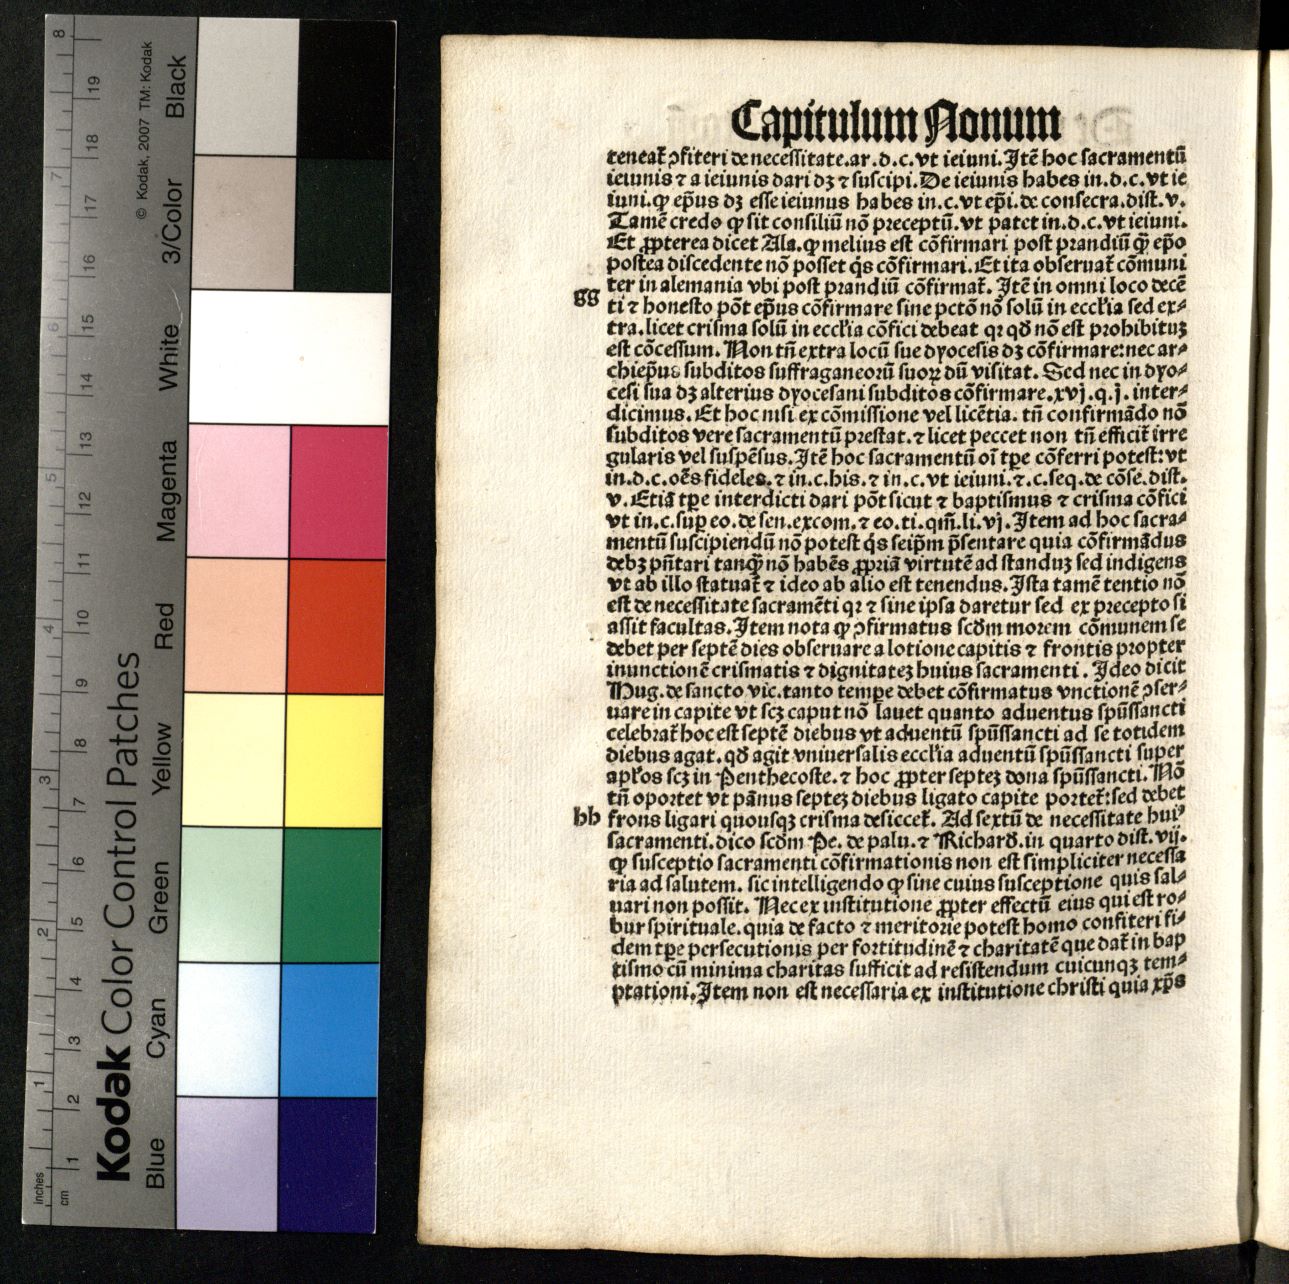 Capitulum Nonum
teneat᷑ ꝯfiteri de necessitate.ar.d.c.vt ieiuni. Itẽ hoc sacramentũ
ieiunis ⁊ a ieiunis dari dꝫ ⁊ suscipi. De ieiunis habes in.d.c.vt ie
iuni.ꝙ ep̃us dꝫ esse ieiunus habes in.c.vt ep̃i.de consecra.dist.v.
Tamẽ credo ꝙ sit consiliũ nõ preceptũ.vt patet in.d.c.vt ieiuni.
Et ꝓpterea dicet Als.ꝙ melius est cõfirmari post prandiũ q̃ ep̃o
postea discedente nõ posset q̇s cõfirmari. Et ita obseruat᷑ cõmuni
ter in alemania vbi post prandiũ cõfirmat᷑. Itẽ in omni loco decẽ
gg
ti ⁊ honesto põt ep̃us cõfirmare sine pctõ nõ solũ in eccl'ia sed ex⸗
tra.licet crisma solũ in eccl'ia cõfici debeat qꝛ qđ nõ est prohibituꝫ
est cõcessum. Non tñ extra locũ sue dyocesis dꝫ cõfirmare:nec ar⸗
chiep̃us subditos suffraganeorũ suoꝝ dũ visitat. Sed nec in dyo⸗
cesi sua dꝫ alterius dyocesani subditos cõfirmare.xvj.q.j. inter⸗
dicimus. Et hoc nisi ex cõmissione vel licẽtia. tñ confirmãdo nõ
subditos vere sacramentũ prestat.⁊ licet peccet non tñ efficit᷑ irre
gularis vel suspẽsus. Itẽ hoc sacramentũ oĩ tp̃e cõferri potest:vt
in.d.c.oẽs fideles.⁊ in.c.his.⁊ in.c.vt ieiuni.⁊.c.seq.de cõse.dist.
v. Etiã tp̃e interdicti dari põt sicut ⁊ baptismus ⁊ crisma cõfici
vt in.c.suꝑ eo.de sen.excom.⁊ eo.ti.qm̃.li.vj. Item ad hoc sacra⸗
mentũ suscipiendũ nõ potest q̇s seip̃m p̃sentare quia cõfirmãdus
debꝫ pñtari tanq̃ nõ habẽs ꝓpriã virtutẽ ad standuꝫ sed indigens
vt ab illo statuat᷑ ⁊ ideo ab alio est tenendus. Ista tamẽ tentio nõ
est de necessitate sacramẽti qꝛ ⁊ sine ipsa daretur sed ex precepto si
assit facultas. Item nota ꝙ ꝯfirmatus scđm morem cõmunem se
debet per septẽ dies obseruare a lotione capitis ⁊ frontis propter
inunctionẽ crismatis ⁊ dignitateꝫ huius sacramenti. Ideo dicit
Hug.de sancto vic.tanto tempe debet cõfirmatus vnctionẽ ꝯser⸗
uare in capite vt scꝫ caput nõ lauet quanto aduentus spũssancti
celebrat᷑ hoc est septẽ diebus vt aduentũ spũssancti ad se totidem
diebus agat.qđ agit vniuersalis eccl'ia aduentũ spũssancti super
apl'os scꝫ in Penthecoste.⁊ hoc ꝓpter septeꝫ dona spũssancti. Nõ
tñ oportet vt pãnus septeꝫ diebus ligato capite portet᷑:sed debet
hh
frons ligari quousqꝫ crisma desiccet᷑. Ad sextũ de necessitate huiꝰ
sacramenti.dico scđm Pe. de palu.⁊ Richarđ.in quarto dist.vij.
ꝙ susceptio sacramenti cõfirmationis non est simpliciter necessa
ria ad salutem. sic intelligendo ꝙ sine cuius susceptione quis sal⸗
uari non possit. Nec ex institutione ꝓpter effectũ eius qui est ro⸗
bur spirituale.quia de facto ⁊ meritorie potest homo confiteri fi⸗
dem tp̃e persecutionis per fortitudinẽ ⁊ charitatẽ que dat᷑ in bap
tismo cũ minima charitas sufficit ad resistendum cuicunqꝫ tem⸗
ptationi. Item non est necessaria ex institutione christi quia xp̃s
Kodak Color Control Patches
© Kodak, 2007 TM: Kodak
Blue Cyan Green Yellow Red Magenta White 3/Color Black
inches 1 2 3 4 5 6 7 8
cm 1 2 3 4 5 6 7 8 9 10 11 12 13 14 15 16 17 18 19